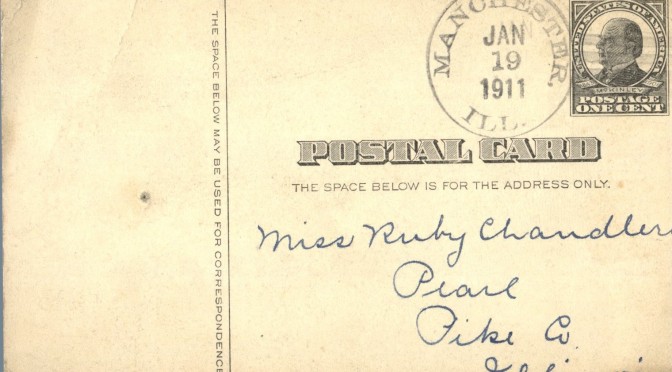 THE SPACE BELOW MAY BE USED FOR CORRESPONDENCE
MANCHESTER,
JAN
19
1911
ILL.
UNITED STATES OF AMERICA
McKINLEY
POSTAGE
ONE CENT
POSTAL CARD
THE SPACE BELOW IS FOR THE ADDRESS ONLY.
Miss Ruby Chandler
Pearl
Pike Co